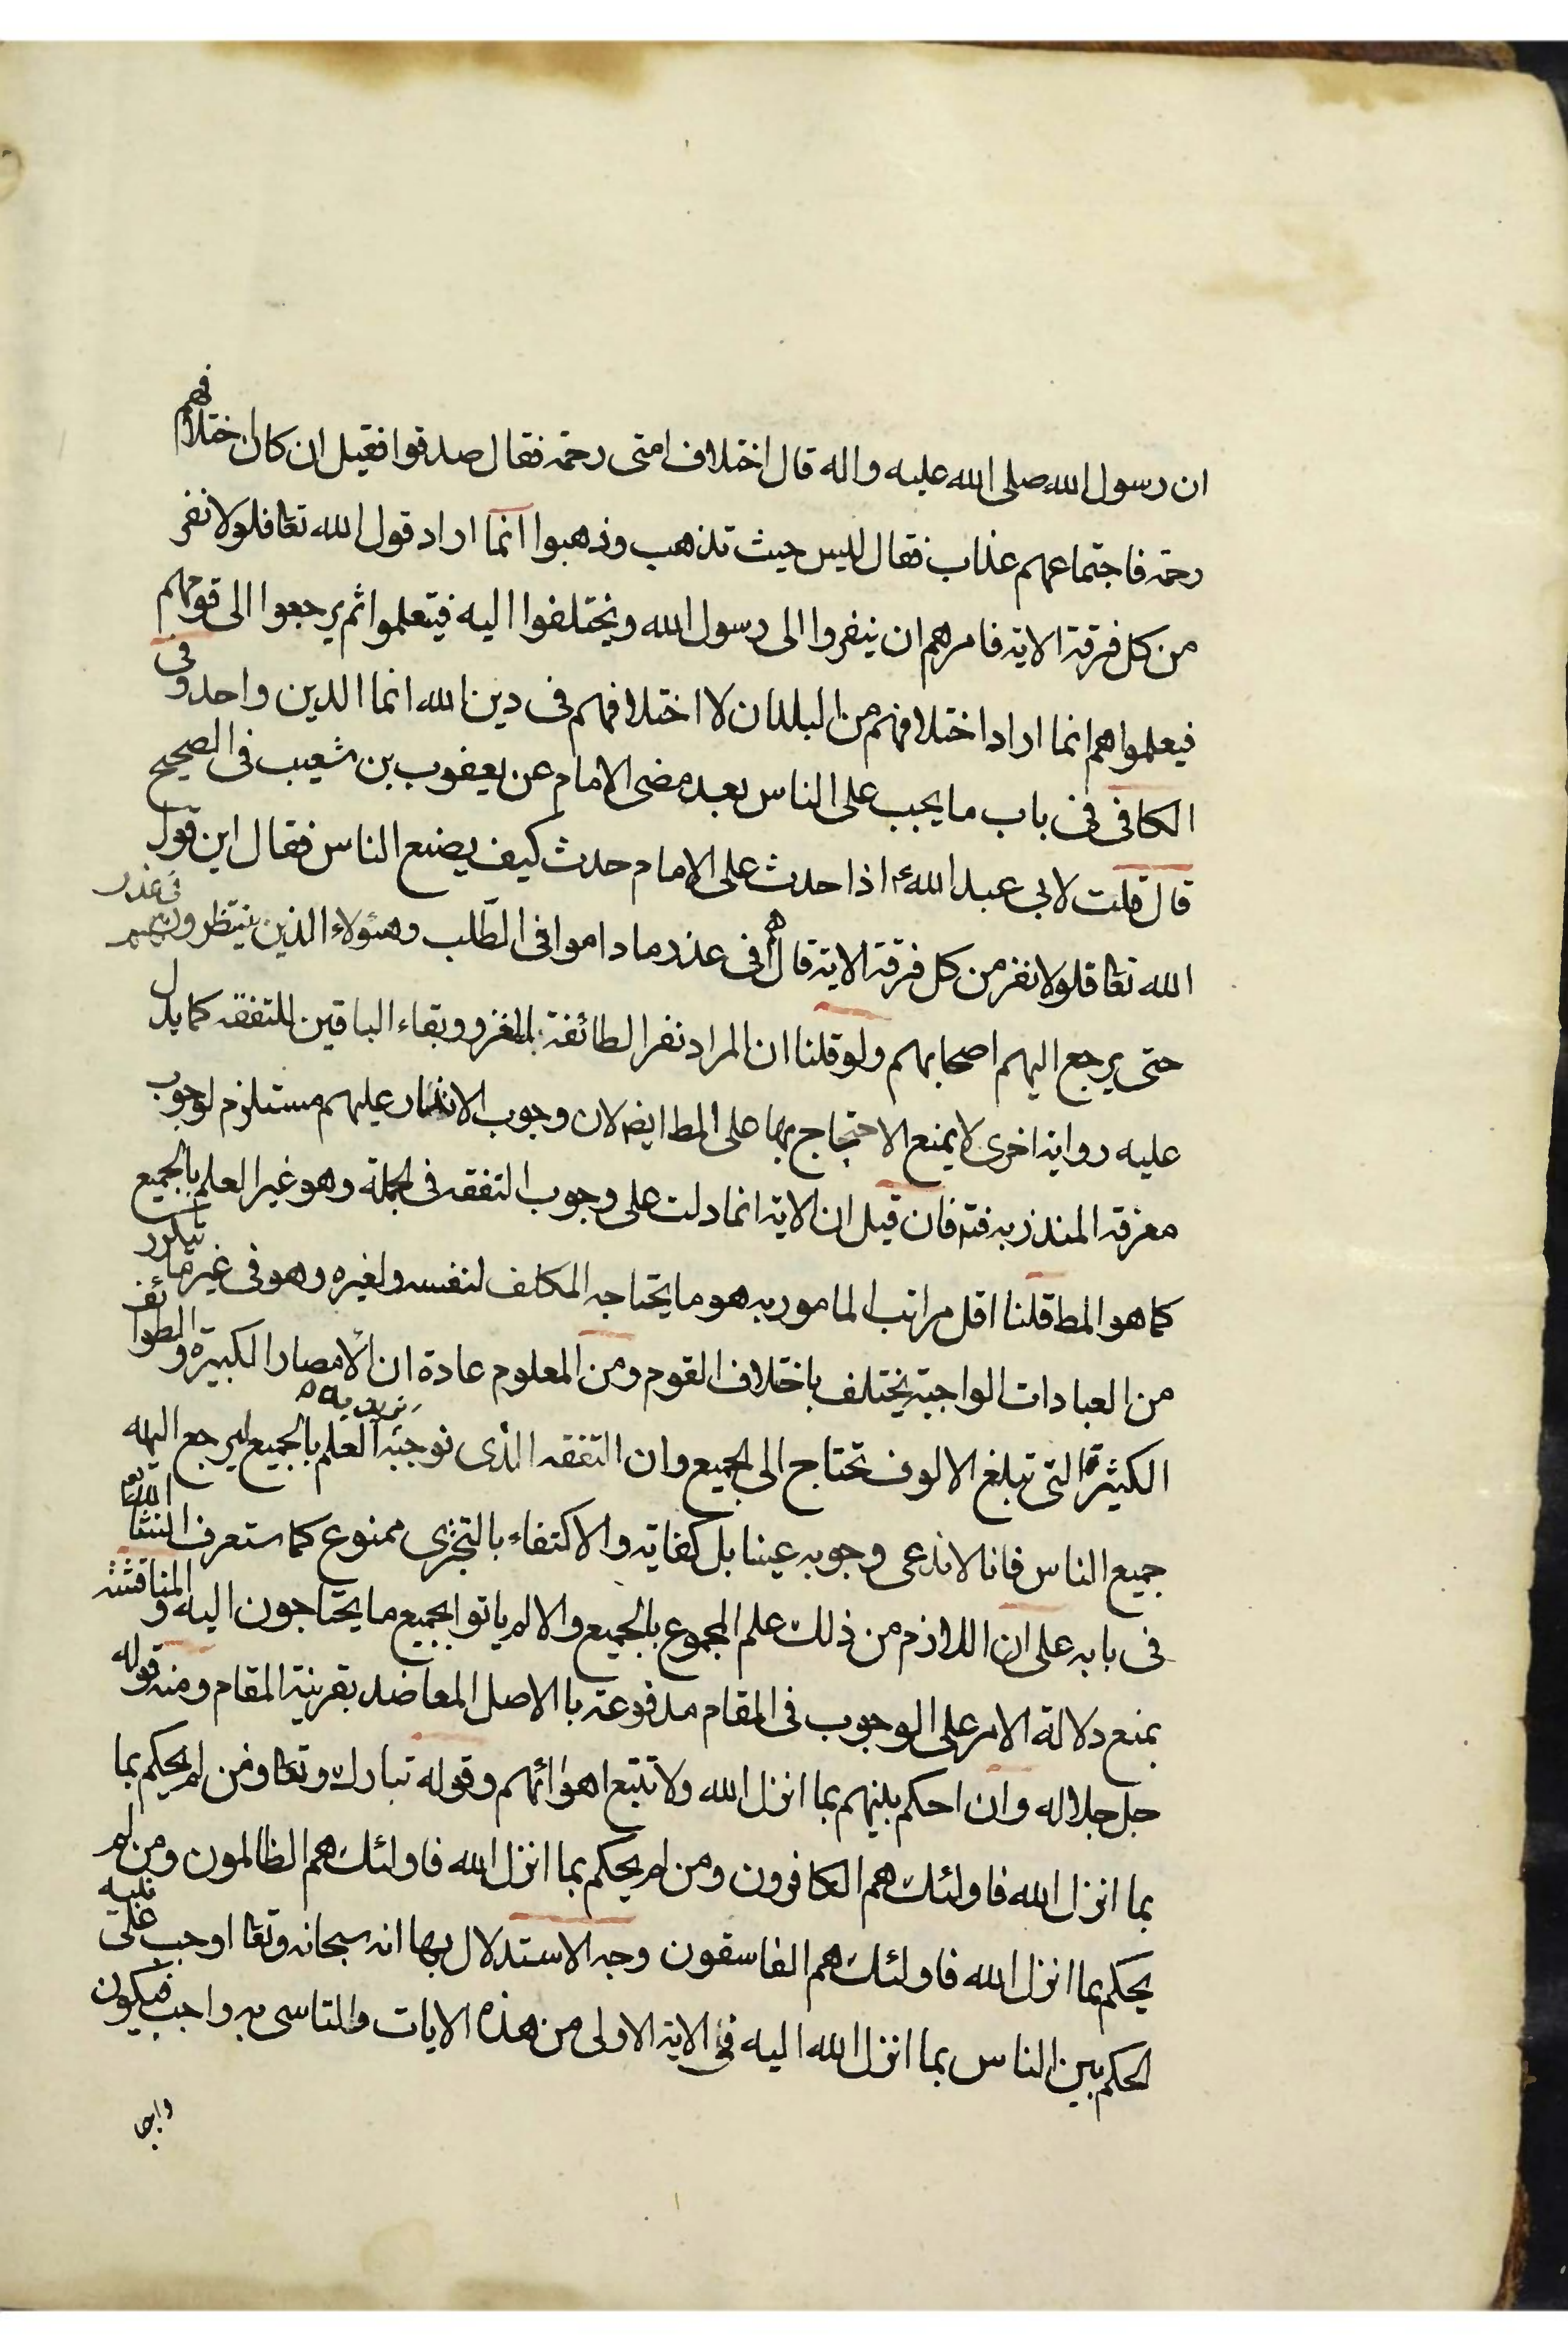 ان رسول الله صلى الله عليه واله قال اختلاف امتى رحمة فقال صدقوا فقيل ان كان اختلافهم
رحمة فاجتماعهم عذاب فقال ليس حيث تذهب وذهبوا انما اراد قول الله تعا فلولا نفر
من كل فرقة الاية فامرهم ان ينفروا الى رسول الله ويختلفوا اليه فيتعلموا ثم يرجعوا الى قومهم
فيعلموا هم انما اراد اختلافهم من البلدان لا اختلافهم فى دين الله انما الدين واحد وفى
الكافى فى باب ما يجب على الناس بعد مضى الامام عن يعقوب بن شعيب فى الصحيح
قال قلت لابى عبد الله ع اذا حدث على الامام حدث كيف يصنع الناس فقال اين قول
الله تعا فلولا نفر من كل فرقة الاية قال هم فى عذر ما داموا فى الطلب وهئولاء الذين ينتظرونهم فى عذر
حتى يرجع اليهم اصحابهم ولو قلنا ان المراد نفر الطائفة للغزو وبقاء الباقين للتفقه كما يدل
عليه رواية اخرى لا يمنع الاحتجاج بها على المط ايضا لان وجوب الانذار عليهم مستلزم لوجوب
معرفة المنذر به فتم فان قيل ان الاية انما دلت على وجوب التفقه فى الجملة وهو غير العلم بالجميع
كما هو المط قلنا اقل مراتب المامور به هو ما يحتاجه المكلف لنفسه ولغيره وهو فى غير ما يتكرر
من العبادات الواجبة يختلف باختلاف القوم ومن المعلوم عادة ان الامصار الكبيرة والطوائف
الكثيرة التى تبلغ الالوف تحتاج الى الجميع وان التفقه الذى نوجبه العلم بالجميع ليرجع اليه
جميع الناس فانا لا ندعى وجوبه عينا بل كفاية والاكتفاء بالتجزى ممنوع كما ستعرف انشا الله تعا
فى بابه على ان اللازم من ذلك علم المجموع بالجميع والا لم ياتوا بجميع ما يحتاجون اليه والمناقشة
بمنع دلالة الامر على الوجوب فى المقام مدفوعة با الاصل المعاضد بقرينة المقام ومنه قوله
جل جلاله وان احكم بينهم بما انزل الله ولا تتبع اهوائهم وقوله تبارك وتعا ومن لم يحكم بما
بما انزل الله فاولئك هم الكافرون ومن لم يحكم بما انزل الله فاولئك هم الظالمون ومن لم
يحكم بما انزل الله فاولئك هم الفاسقون وجه الاستدلال بها انه سبحانه وتعا اوجب على نبيه
الحكم بين الناس بما انزل الله اليه فى الاية الاولى من هذه الايات والتاسى به واجب فيكون
واجبا